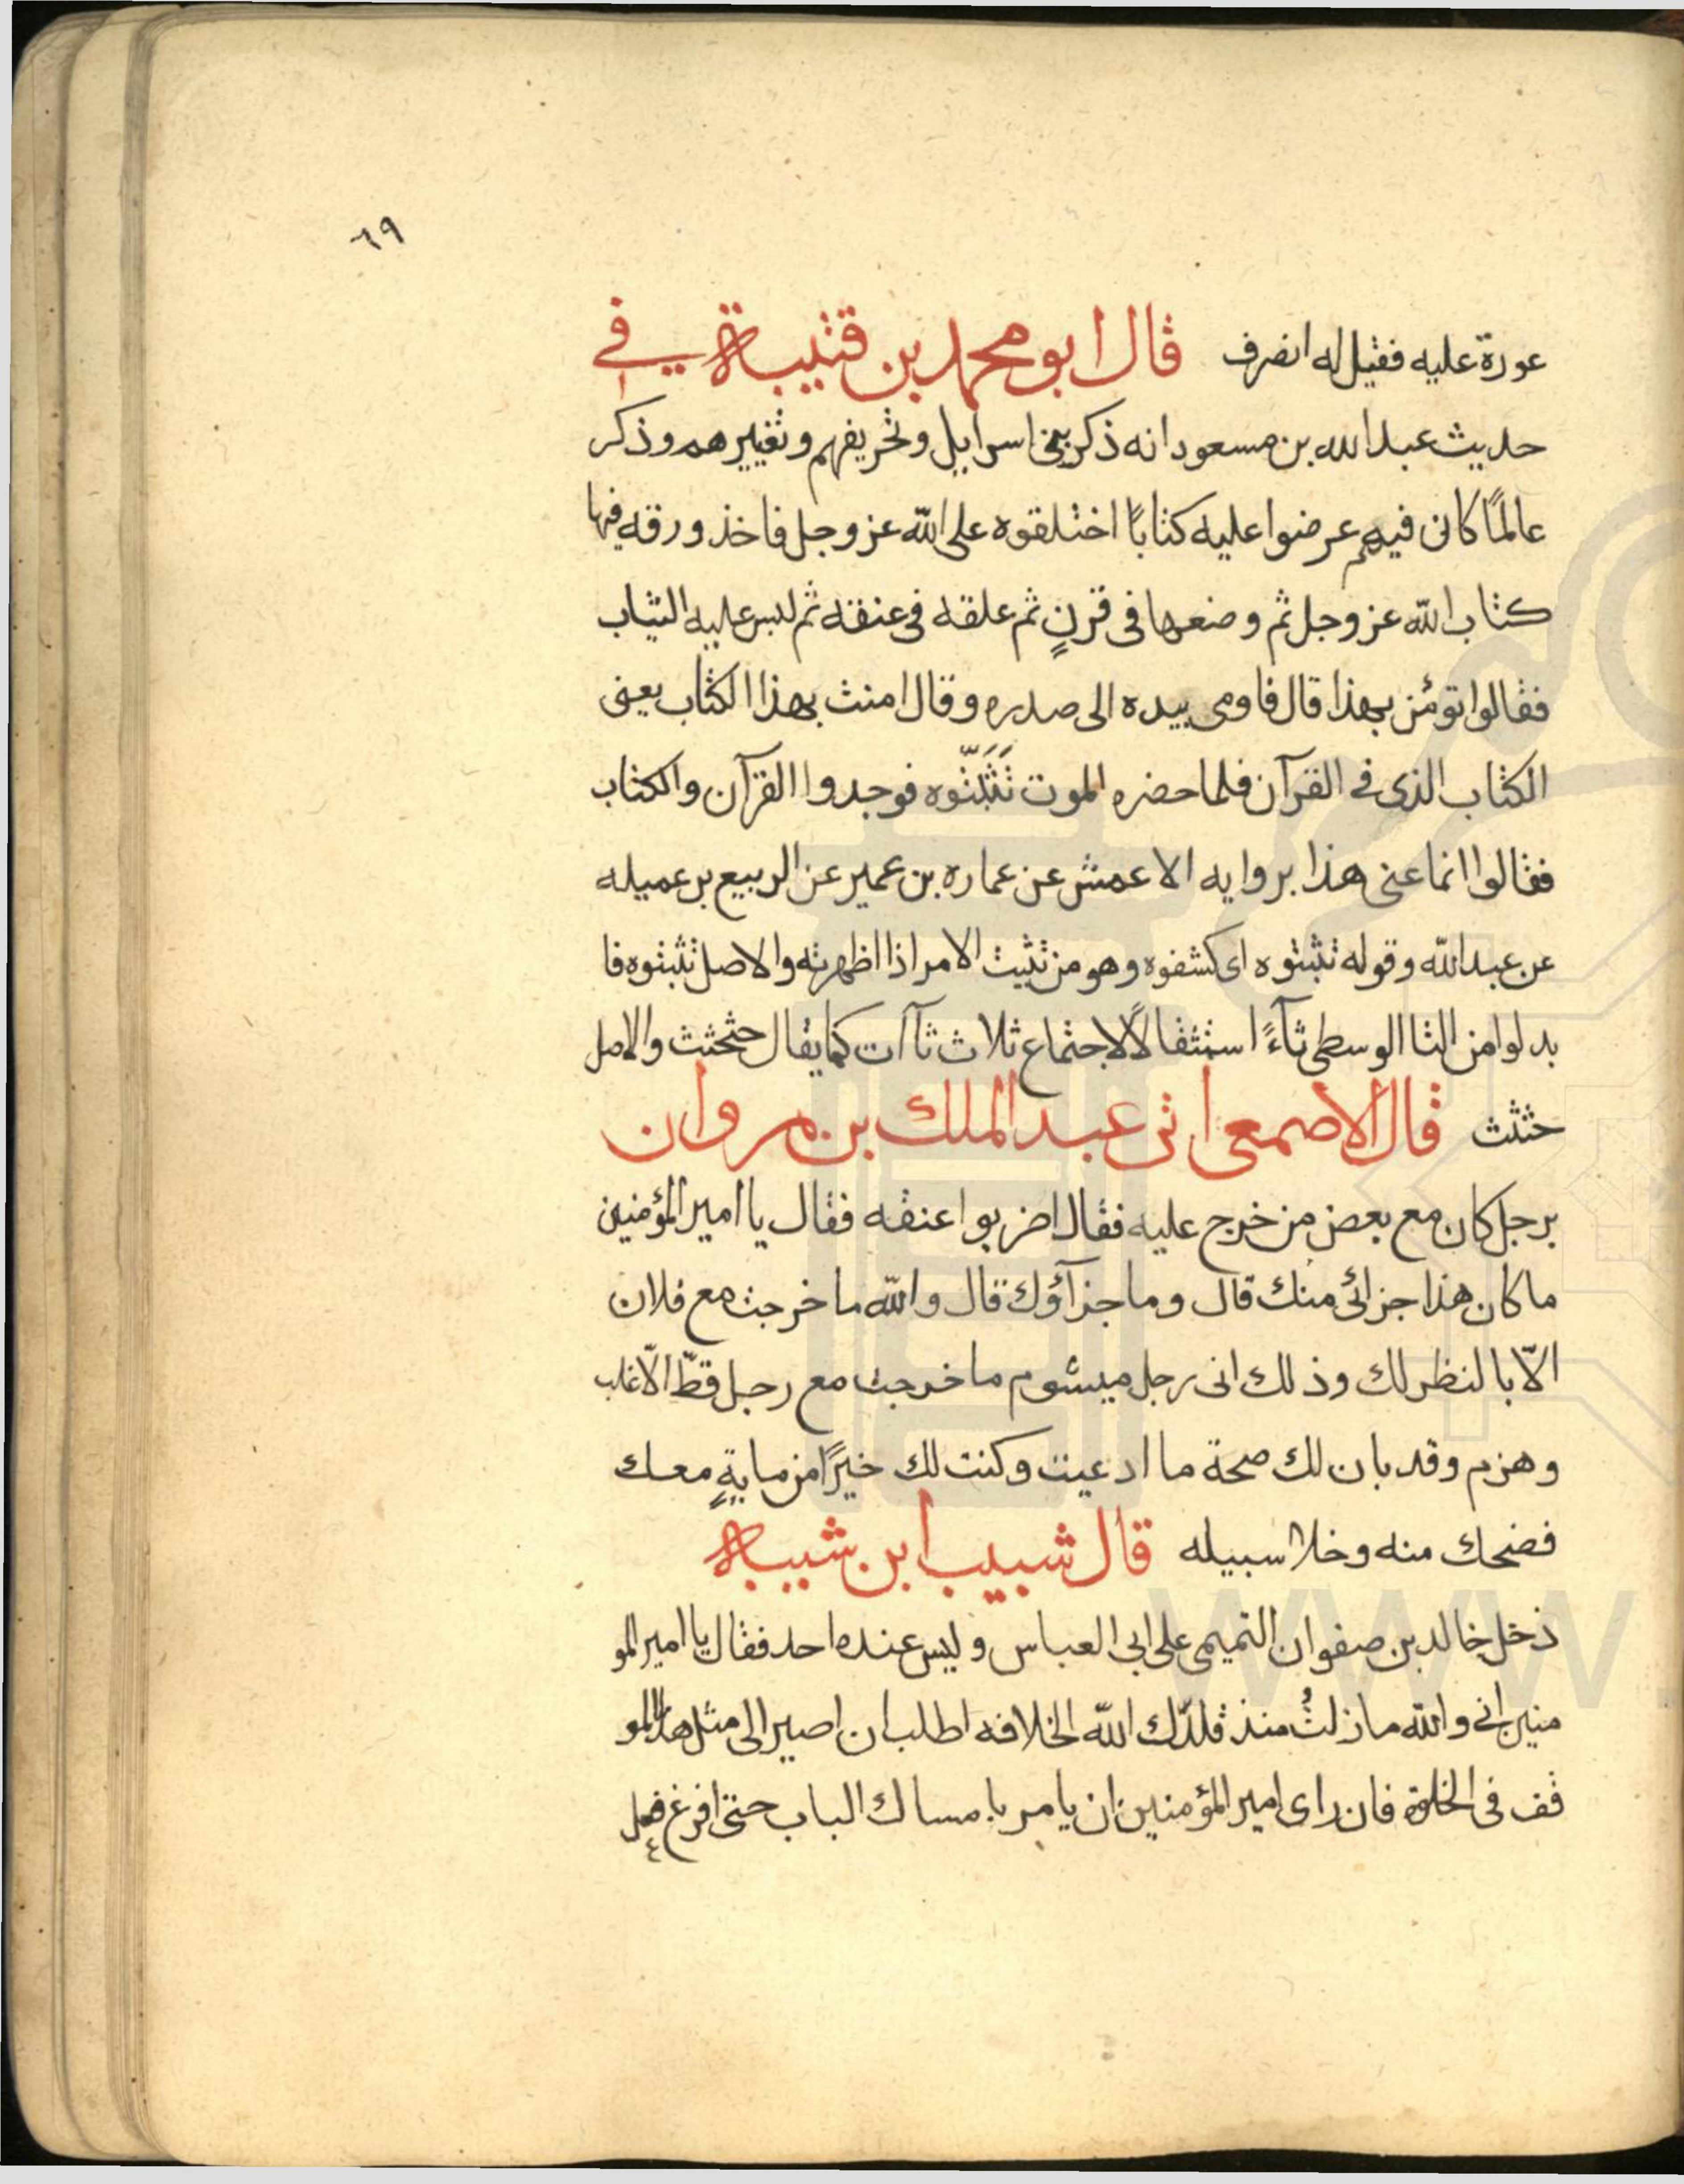 ٦٩
عورة عليه فقيل له انصرف قال ابو محمد بن قتيبة في
حديث عبد الله بن مسعود انه ذكر بني اسرايل وتحريفهم وتغييرهم وذكر
عالمًا كان فيهم عرضوا عليه كتابًا اختلقوه على الله عز وجل فاخذ ورقه فيها
كتاب الله عز وجل ثم وضعها في قرنٍ ثم علقه في عنقه ثم لبس عليه الثياب
فقالوا تؤمن بهذا قال فاومى بيده الى صدره وقال امنت بهذا الكتاب يعني
الكتاب الذي في القرآن فلما حضره الموت نَثْبَثُوه فوجدوا القرآن والكتاب
فقالوا انما عنى هذا بروايه الاعمش عن عماره بن عمير عن الربيع بن عميله
عن عبد الله وقوله نثبثوه اى كشفوه وهو من نثيث الامر اذا اظهرته والاصل نثبثوه فا
بدلوا من الثا الوسطى ثآءً استثقالًا لاجتماع ثلاث ثآات كما يقال حثحثت والاصل
حثثث قال الاصمعى اتى عبد الملك بن مروان
برجل كان مع بعض من خرج عليه فقال اضربوا عنقه فقال يا امير المؤمنين
ما كان هذا جزائى منك قال وما جزآؤك قال والله ما خرجت مع فلان
الّا بالنظر لك وذلك انى رجل ميشوم ما خرجت مع رجل قطّ الّا غلب
وهزم وقد بان لك صحة ما ادعيت وكنت لك خيرًا من مايةٍ معك
فضحك منه وخلا سبيله قال شبيب ابن شيبة
دخل خالد بن صفوان التميمى على ابى العباس وليس عنده احد فقال يا امير المو
منين انى والله ما زلتُ منذ قلدّك الله الخلافه اطلب ان اصير الى مثل هذا المو
قف فى الخلوة فان راى امير المؤمنين ان يامر بامساك الباب حتى افرغ فعل